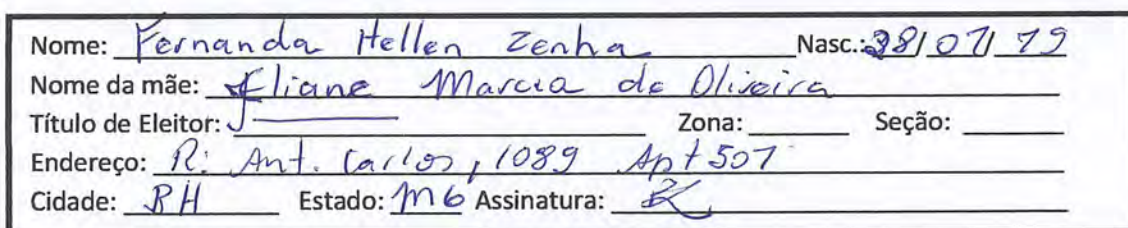 Nome: Fernanda Hellen Zenha Nasc.: 28/07/79
Nome da mãe: Eliane Marcia de Oliveira
Título de Eleitor: Zona: Seção:
Endereço: R: Ant. Carlos, 1089 Apt 501
Cidade: BH Estado: MG Assinatura: